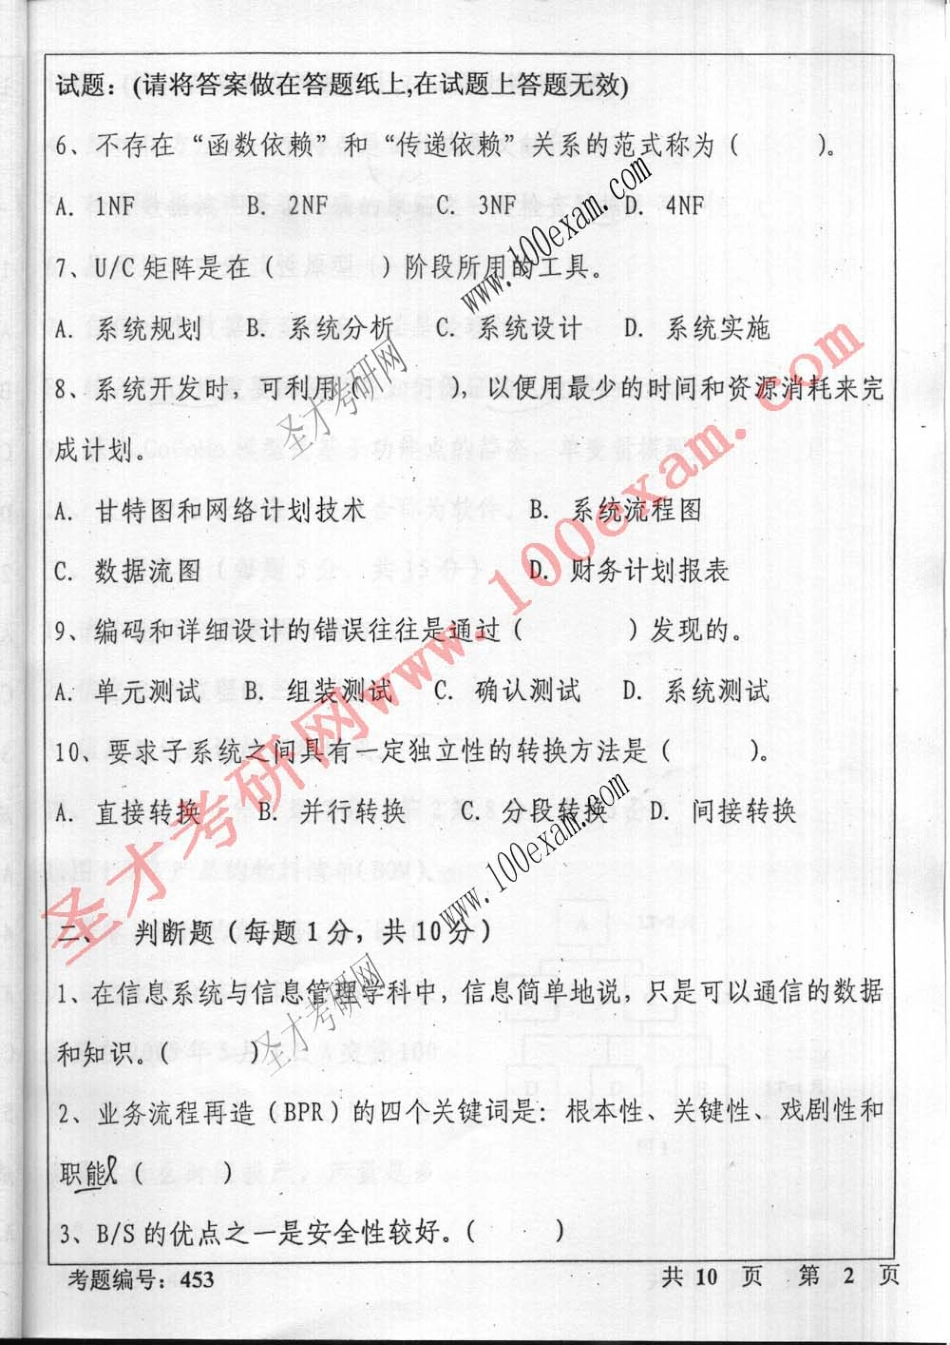 试题：(请将答案做在答题纸上,在试题上答题无效)
6、不存在“函数依赖”和“传递依赖”关系的范式称为（　　）。
A. 1NF　B. 2NF　C. 3NF　D. 4NF
7、U/C矩阵是在（　　）阶段所用的工具。
A. 系统规划　B. 系统分析　C. 系统设计　D. 系统实施
8、系统开发时，可利用（　　），以便用最少的时间和资源消耗来完
成计划。
A. 甘特图和网络计划技术　B. 系统流程图
C. 数据流图　D. 财务计划报表
9、编码和详细设计的错误往往是通过（　　）发现的。
A. 单元测试　B. 组装测试　C. 确认测试　D. 系统测试
10、要求子系统之间具有一定独立性的转换方法是（　　）。
A. 直接转换　B. 并行转换　C. 分段转换　D. 间接转换
二、　判断题（每题1分，共10分）
1、在信息系统与信息管理学科中，信息简单地说，只是可以通信的数据
和知识。（　　）
2、业务流程再造（BPR）的四个关键词是：根本性、关键性、戏剧性和
职能（　　）
3、B/S的优点之一是安全性较好。（　　）
考题编号：453　共 10 页　第 2 页
圣才考研网www.100exam.com
www.100exam.com
圣才考研网
www.100exam.com
圣才考研网